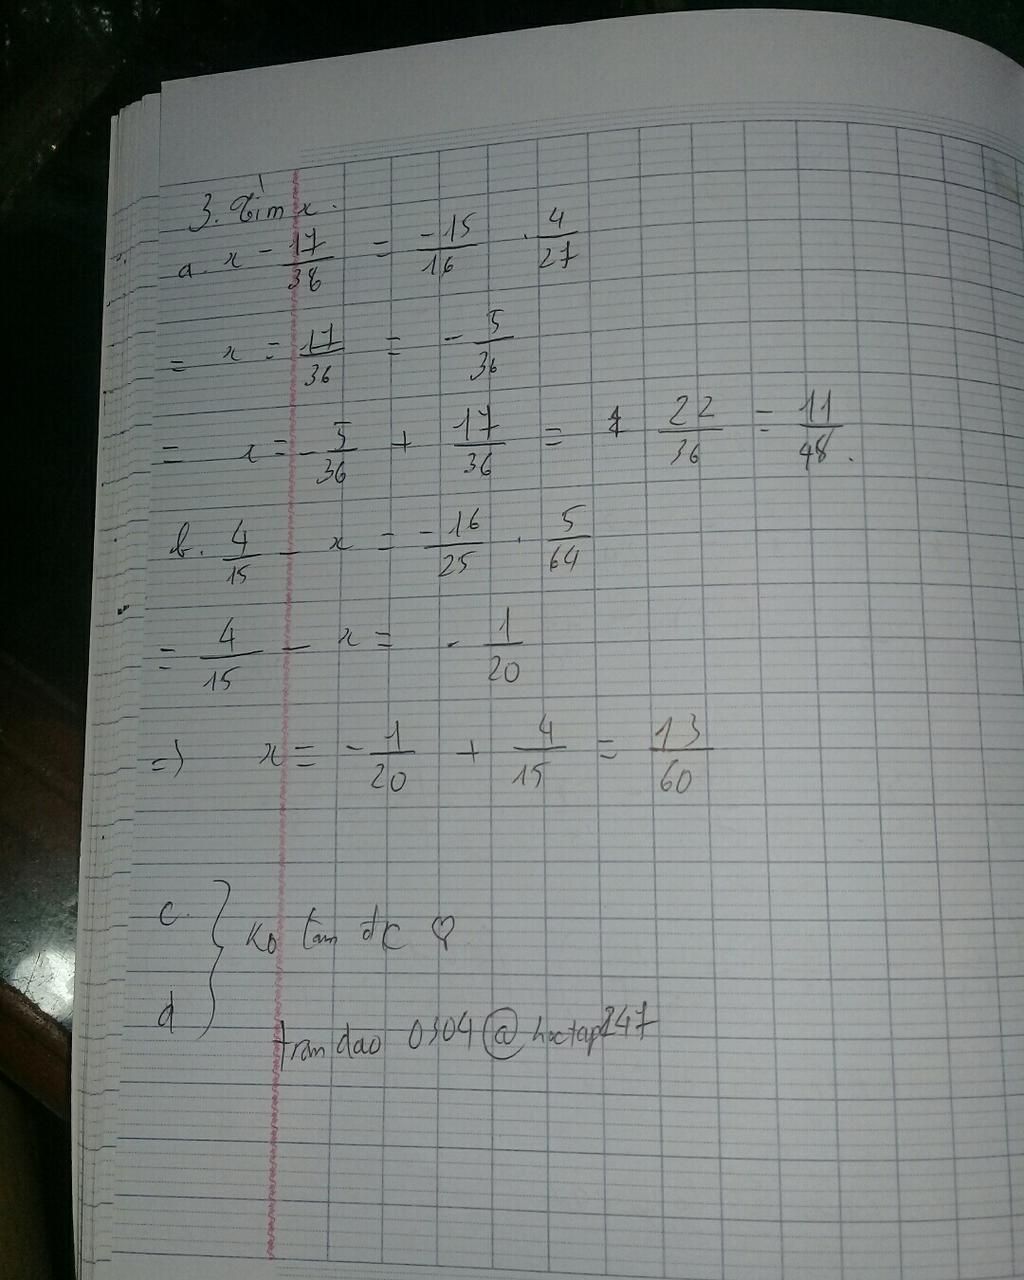 3. Tìm x.
a. x - 17/36 = -15/16 . 4/27
= x = 17/36 = - 5/36
= x = - 5/36 + 17/36 = 22/36 = 11/48.
b. 4/15 - x = -16/25 . 5/64
= 4/15 - x = - 1/20
=) x = - 1/20 + 4/15 = 13/60
c.
ko lam đc ♡
d
tran dao 0304 @ hoctap247